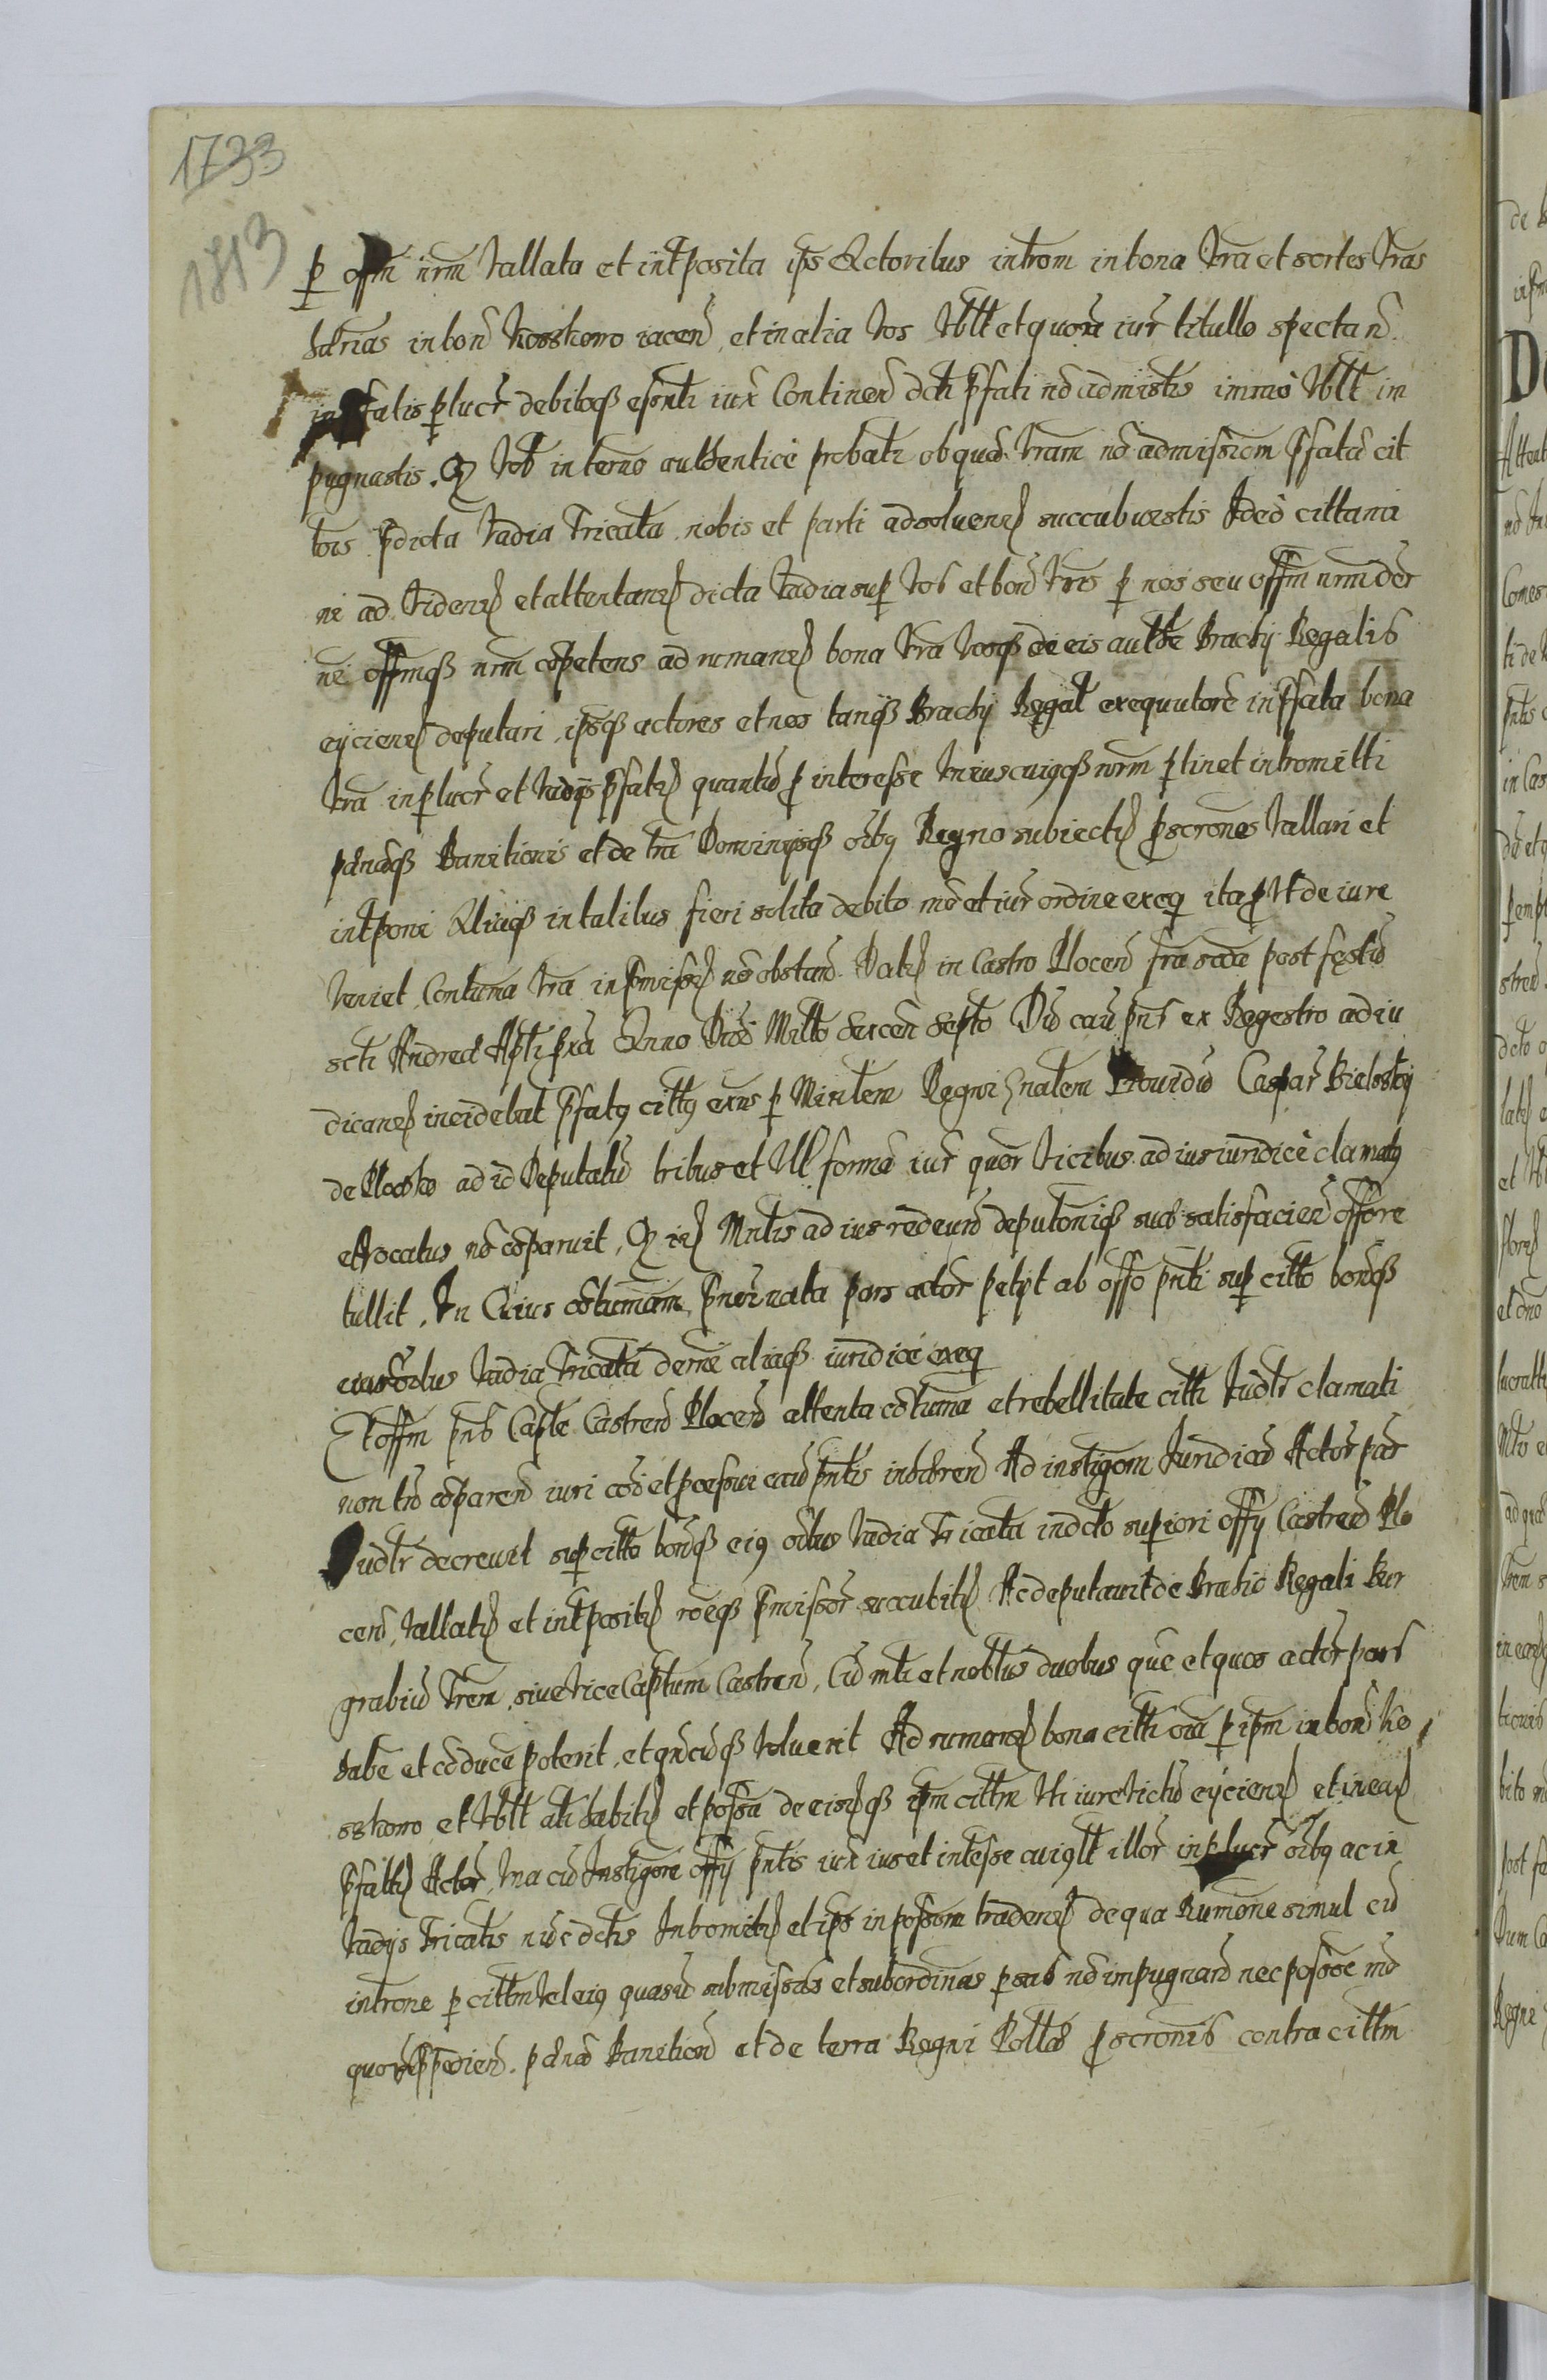 1733
1813
p offm nrm vallata et intposita ips Actoribus introm in bona vra et sortes vras
hdrias in bon Kosskowo iacen et in alia vos vbllt et quovis iur titullo spectan
in pfatis p lucr debitoqß esnti iux Continen dcti pfati nō admistis immo vbllt im
pugnastis. Q vob in terno authentice probatr ob quā vram nō admissiom pfatā cit
tors pdicta vadia tricata nobis et parti ad soluenđ succubuistis Adeo cittami
ni ad videnđ et attentanđ dicta vadia sup vos et bon vris p nos seu offm nrm der
ni offmqß nrm copetens ad rumanđ bona vra vosqß de eis authte Brachy Regalis
eyciendđ deputari, ipsqß actores et nos tanqß Brachy Regal exequutore in pfata bona
vra in p lucr et vadys pfatđ quantū p interesse vniuscuiusqß norm ptinet intromitti
pdnāqß Banitionis et de tra Dominysqß oibq Regno subiectđ pscrones vallari et
intponi Aliaqß in talibus fieri solita debito mō et iur ordine exeq ita p vt de iure
veniet Contuma vra in pmissđ nō obstanđ. Datđ in Castro Plocen fra scđa post festū
scti Andreae Apti pxa Anno Dnō Millo Sexcen septo Dū cau pns ex Regestro ad iu
dicanđ incidebat pfatq cittq exns p Minitem Regni gnalem Prouidū Caspar Bielskij
de Plocko ad id Deputatū tribus et vll forma iur quor vicibus ad ius iuridice clamatq
et vocatus nō coparuit, Q iđ Mntis ad ius redeunđ deputoniqß suā satisfacien offere
tullit, In Cuius cōtumam pnoīnata pars actōr petyt ab offo pnti sup citto bonqß
eius oibus vadia tricata derni aliaqß iuridice exeq
Et offm pns Captle Castren Plocen attenta cōtuma et rebellitate citti Judlr clamati
non tn cōparen iuri coi et pcessui cau pntis inhdren Ad instigom Juridicā Actōr par
Judlr decrevit sup citto bonqß eiq oibus vadia tricata in dcto supiori offy Castren Plo
cen, vallatđ et intpositđ roēqß pmissor succubitđ Ac deputavit de Brachio Regali Bur
grabiū Trem, siue vice Captum Castren, Cū mti et nobibus duobus que et quos actor pars
habe et cōduce poterit, et qncuqß voluerit Ad rumanđ bona citti oia p ipm in bon Ko
sskowo et vbllt ati habitđ et possa de eisđqß ipm cittm vti iure victū eyciendđ et in eađ
pfattđ Actor, vna cū Instigore offy pntis iux ius et intesse cuiqlt illor in p lucr oibq ac in
vadys tricatis nuc dctis Intromitđ et ips in possom tradenđ de qua Rumōne simul cū
introne p cittm vel eiq quasū submissas et subordinas psas nō impugnanđ nec possoe mō
quovis ppedien. pdna Banition et de terra Regni Polla pscronis contra cittm